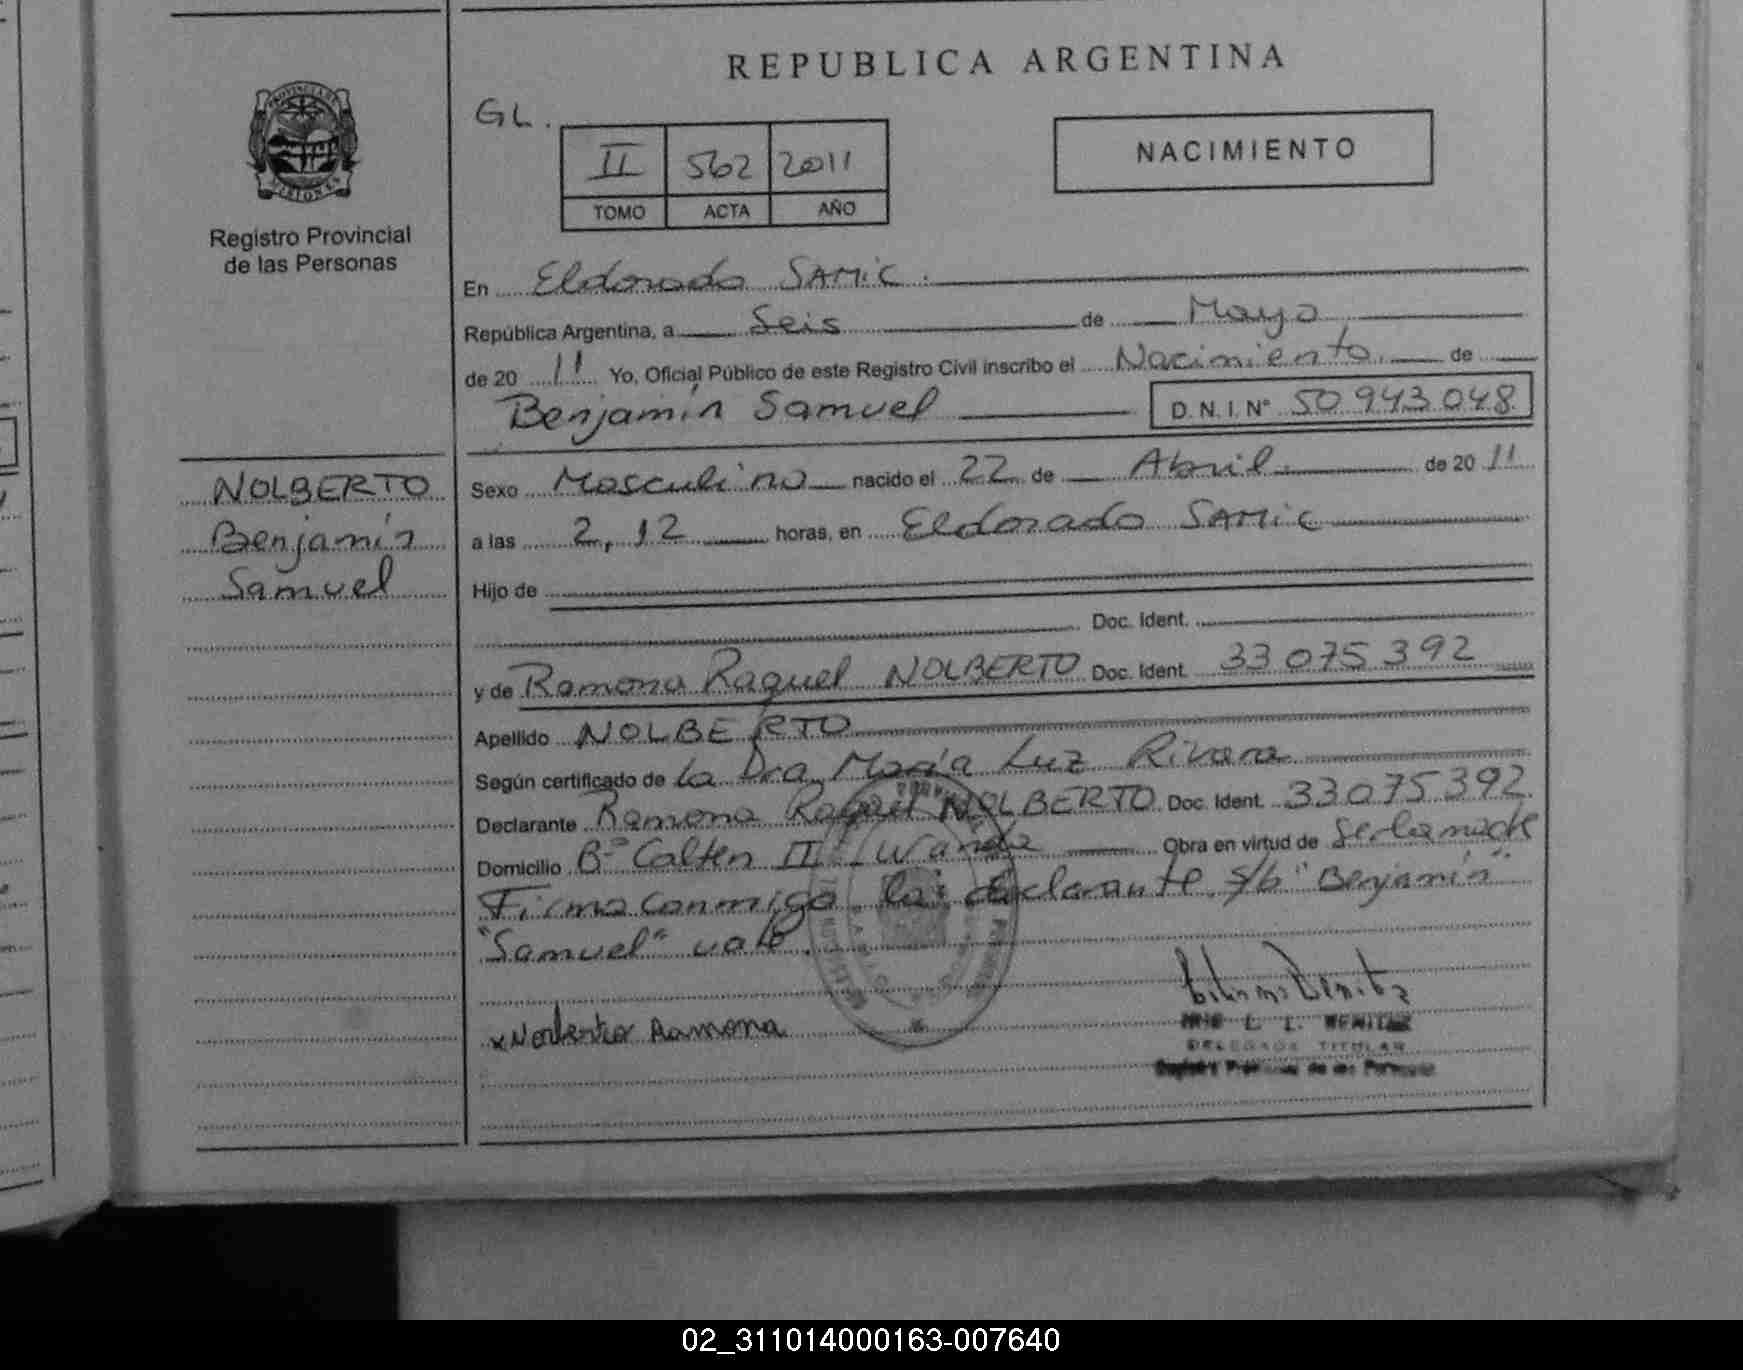 REPUBLICA ARGENTINA
GL.
II 562 2011
TOMO ACTA AÑO
NACIMIENTO
PROVINCIA DE
MISIONES
Registro Provincial
de las Personas
En Eldorado SAMIC.
República Argentina, a Seis de Mayo
de 20 11 Yo, Oficial Público de este Registro Civil inscribo el Nacimiento de
Benjamín Samuel D.N.I. Nº 50 943 048
NOLBERTO
Benjamín
Samuel
Sexo Masculino nacido el 22 de Abril de 20 11
a las 2,12 horas, en Eldorado SAMIC
Hijo de
Doc. Ident.
y de Ramona Raquel NOLBERTO Doc. Ident. 33 075 392
Apellido NOLBERTO
Según certificado de la Dra María Luz Rivara
Declarante Ramona Raquel NOLBERTO Doc. Ident. 33075392
Domicilio Bº Calten II Wanda Obra en virtud de ser la madre
Firma conmigo la declarante s/b "Benjamín"
"Samuel" vale.
x Nolberto Ramona
DELEGADA TITULAR
Registro Provincial de las Personas
02_311014000163-007640